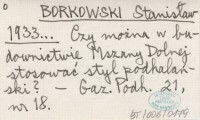 BORKOWSKI Stanisław
1933... Czy można w bu-
downictwie Mszany Dolnej
stosować styl podhalań-
ski? — Gaz. Podh. 21,
nr 18.